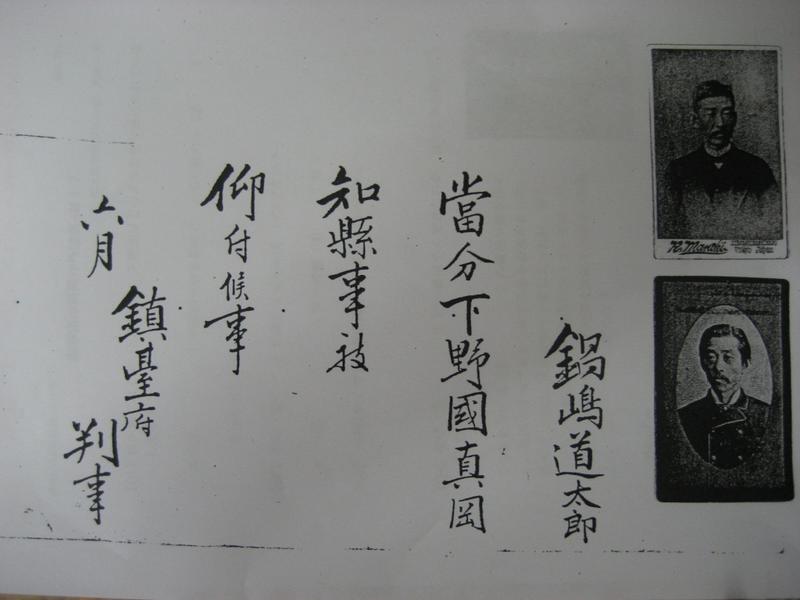 鍋嶋道太郎
當分下野國真岡
知縣事被
仰付候事
六月
鎮臺府
判事